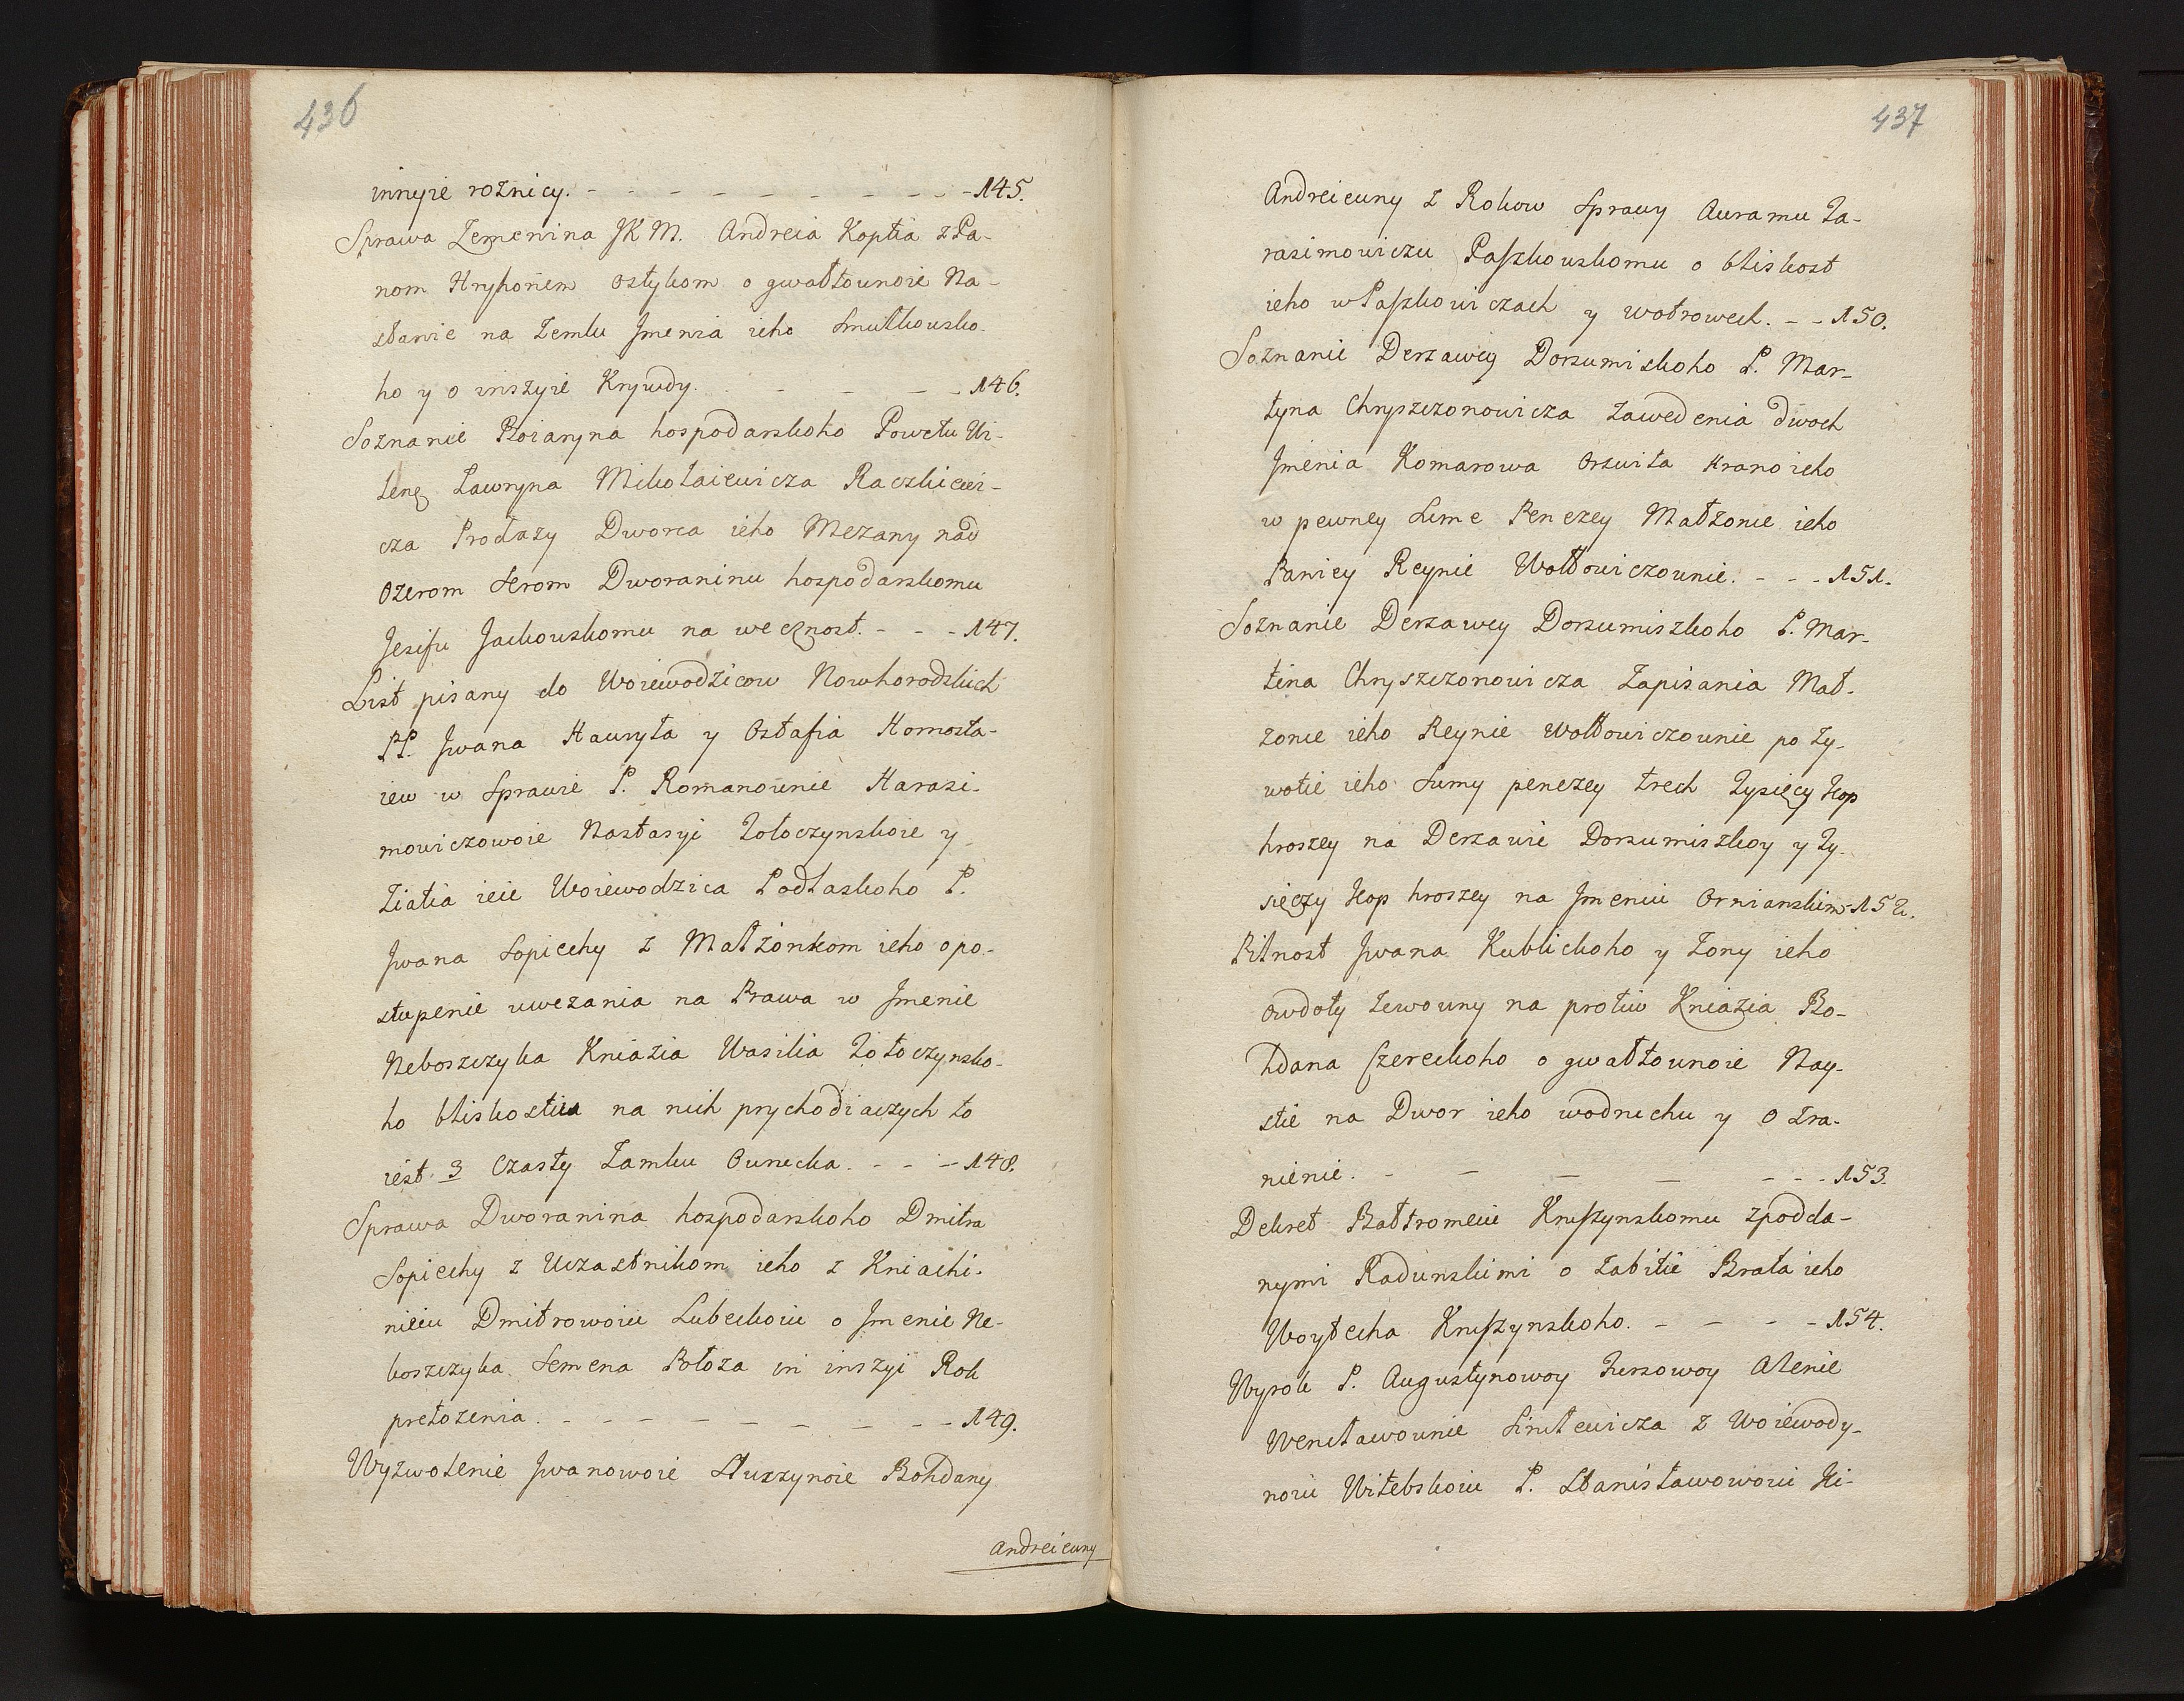 436
innyie roznicy. - - - - - - - - - -145.
Sprawa Zemenina JKM. Andreia Koptia z Pa-
nom Hryhoriem Ostykom o gwałtownoie Na-
słanie na Zemlu Jmenia ieho Smulkousko-
ho y o inszyie Krywdy. - - - - 146.
Soznanie Boiaryna hospodarskoho Powetu Wi-
leng Ławryna Mikołaiewicza Raczkiewi-
cza Prodazy Dworca ieho Mezany nad
Ozerom Serom Dworaninu hospodarskomu
Jesifu Jackouskomu na wecznost. - - -147.
List pisany do Woiewodzicow Nowhorodskich
PP. Jwana Hauryła y Ostafia Hornosta-
iew w Sprawie P. Romanounie Harasi-
mowiczowoie Nastasyi Zołoczynskoie y
Ziatia ieie Woiewodzica Podlaskoho P.
Jwana Sopiechy z Małżonkom ieho o po-
stupenie uwezania na Prawa w Jmenie
Neboszczyka Kniazia Wasilia Zołoczynsko-
ho bliskostiu na nich prychodiaczych to
iest 3 Czasty Zamku Ounecka. - - -148.
Sprawa Dworanina hospodarskoho Dmitra
Sopiechy z Uczastnikom ieho z Kniachi-
nieiu Dmitrowoiu Lubeckoiu o Jmenie Ne-
boszczyka Semena Połoza in inszyi Rok
prełozenia. - - - - - - - - - -149.
Wyzwolenie Jwanowoie Słuszynoie Bohdany
Andreieuny
437
Andreieuny z Rokow Sprawy Auramu Ta-
rasimowiczu Paszkouskomu o bliskost
ieho w Paszkowiczach y wotrowech. - - 150.
Soznanie Derzawcy Dorsumiskoho P. Mar-
tyna Chryszczonowicza Zawedenia dwoch
Jmenia Komarowa Orzwita Hrano ieho
w pewney Sume Penezey Małzonie ieho
Paniey Reynie Wołłowiczounie. - - - 151.
Soznanie Derzawcy Dorsumiszkoho P. Mar-
tina Chryszczonowicza Zapisania Mał-
zonie ieho Reynie Wołłowiczounie po Zy-
wotie ieho Sumy penezey trech Tysięcy Kop
hroszey na Derzawie Dorsumiszkoy y Ty-
sięczy Kop hroszey na Jmeniu Ornianskim-152.
Pilnost Jwana Kublickoho y Zony ieho
Owdoty Lewouny na protiw Kniazia Bo-
hdana Szereckoho o gwałtounoie Nay-
stie na Dwor ieho wodnechu y o Zra-
nienie. - - - - - - 153.
Dekret Bałtromeiu Kruszynskomu z podda-
nymi Radunskimi o Zabitie Brata ieho
Woytecha Kruszynskoho. - - - - 154.
Wyrok P. Augustynowoy Fursowoy Alenie
Wencławounie Sirutewicza z Woiewody-
noiu Witebskoiu P. Stanisławowoiu Ki-